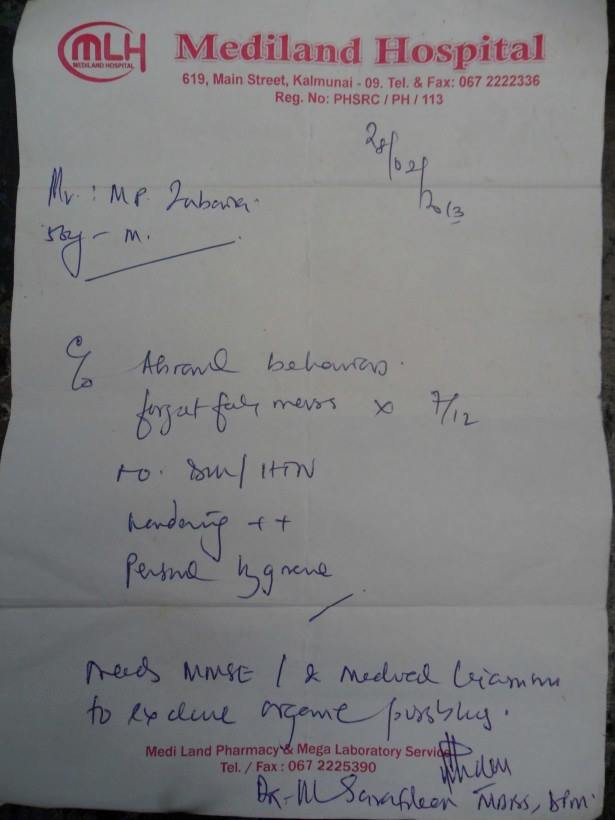 MLH
MEDILAND HOSPITAL
Mediland Hospital
619, Main Street, Kalmunai - 09. Tel. & Fax: 067 2222336
Reg. No: PHSRC / PH / 113
28/02/2013
Mr. : MP.
- M.
c/o behaviours.
x 7/12
DM / HTN
wandering ++
Personal hygiene
needs MMSE / & medical
to exclude organic
Medi Land Pharmacy & Mega Laboratory Service
Tel. / Fax : 067 2225390
Dr. M MBBS, DPM.